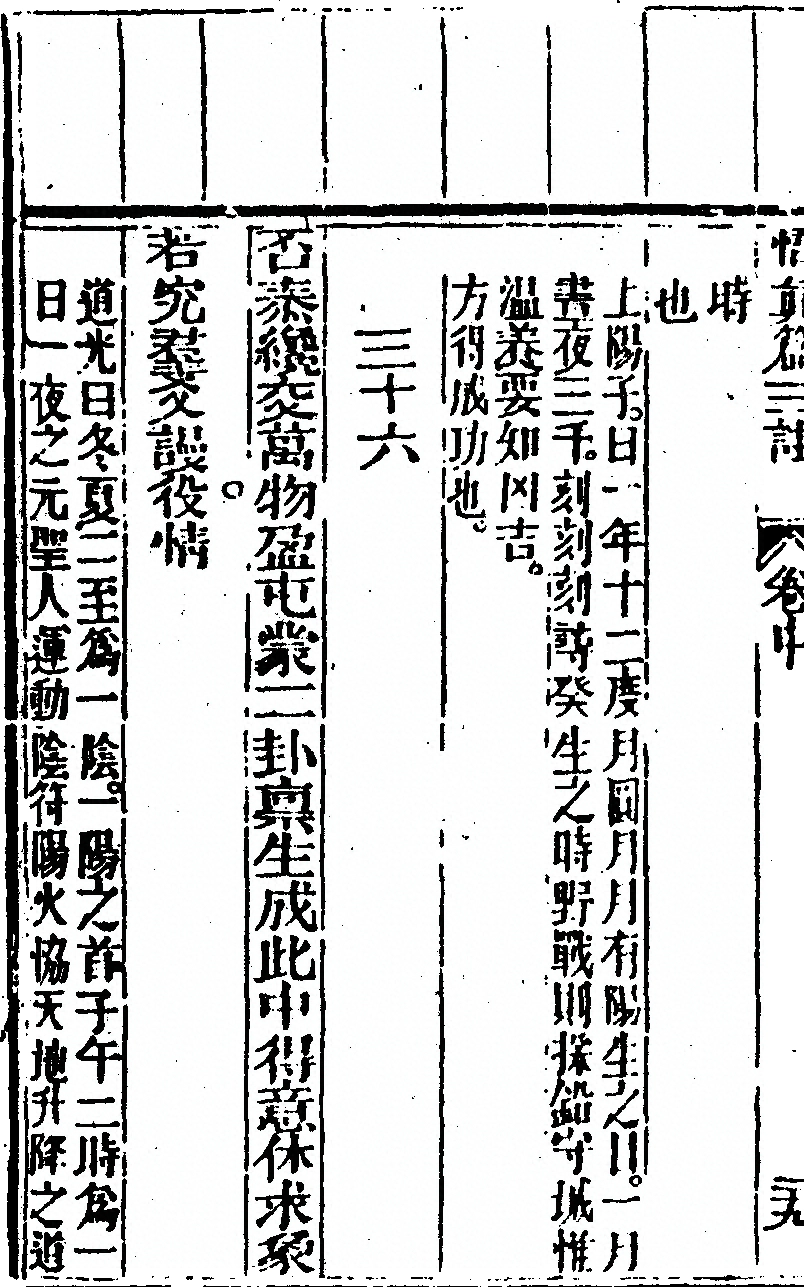 悟眞篇三註 卷中 九
時
也
上陽子。曰一年十二度月圓月月有陽生之日。一月
晝夜三千。刻刻刻癸生之時野戰則採鉛守城惟
溫養要知凶吉。
方得成功也。
三十六
否泰纔交萬物盈屯蒙二卦禀生成此中得意休求象
若究羣爻謾役情
道光曰冬夏二至爲一陰。一陽之首子午二時爲一
日一夜之元聖人運動陰符陽火協天地升降之道